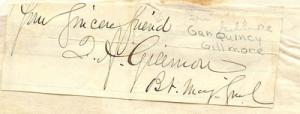 Your Sincere friend
Gen Quincy
Gillmore
Q. A. Gillmore
Bt. Maj. Genl